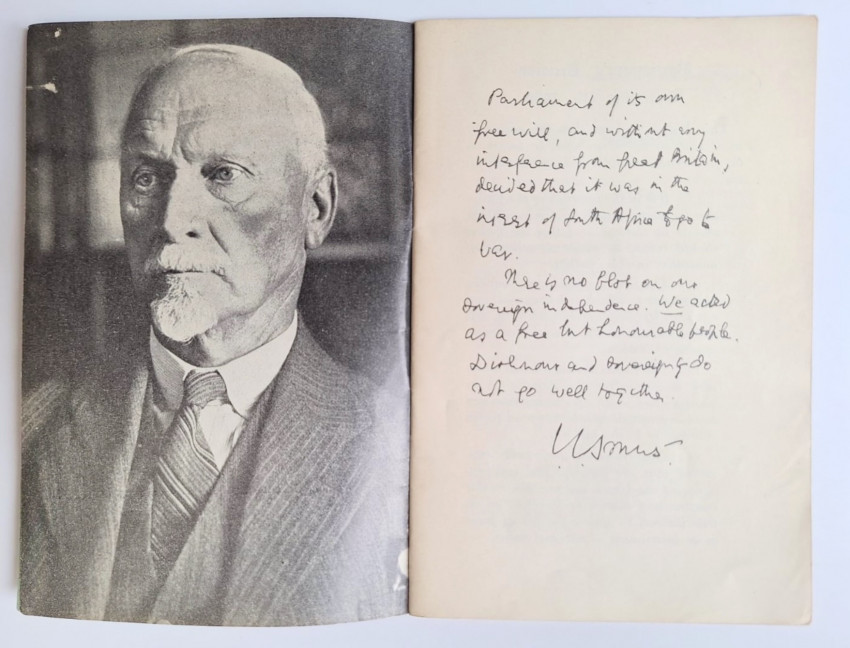 Parliament of its own
free will, and without any
interference from Great Britain,
decided that it was in the
interest of South Africa to go to
war.
There is no blot on our
sovereign independence. We acted
as a free but honourable people.
Dishonour and sovereignty do
not go well together.
J.C. Smuts.